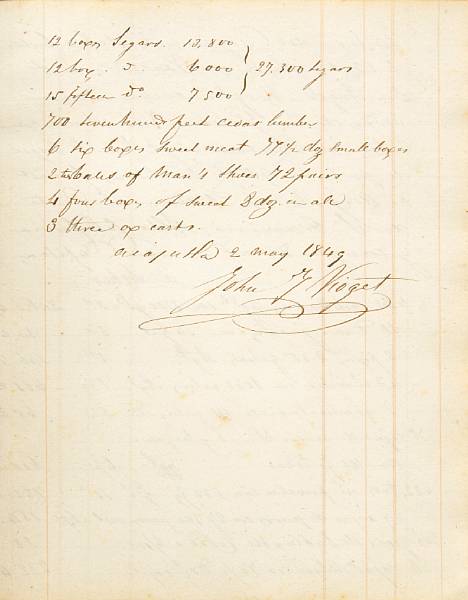 12 boxes Segars. 13,800
12 box . d.. 6000 } 27,300 Segars
15 fifteen do 7500
700 seven hundred feet cedar lumber
6 six boxes sweet meat 77 1/2 doz small boxes
2 two bales of man's shoes 72 pairs
4 four boxes of sweet 8 doz in all
3 three ox carts.
acajutla 2 may 1849
John J Vioget